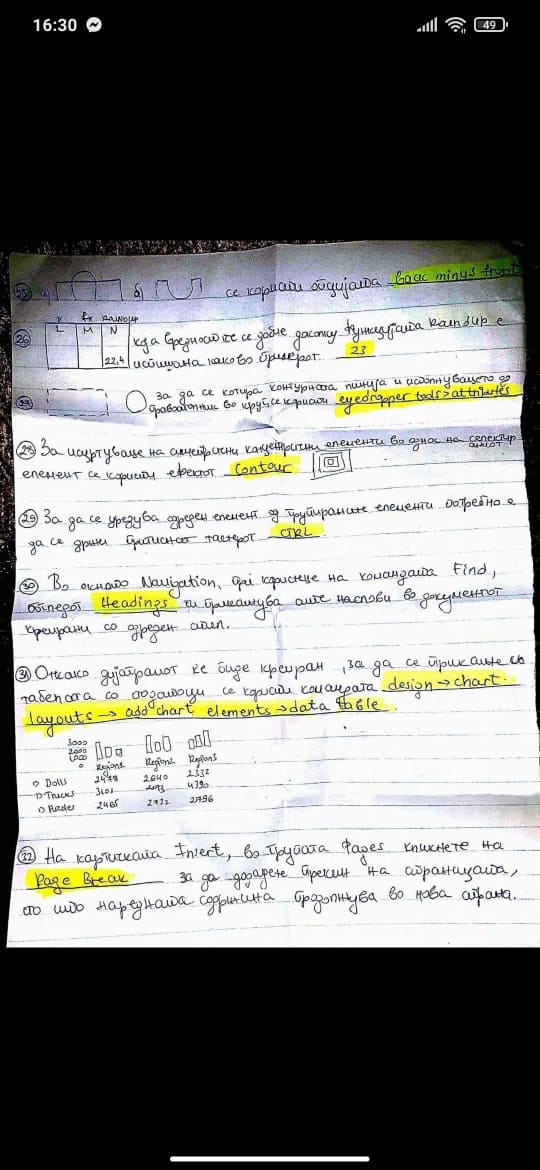 16:30
49
a) б) се користи опцијата back minus front
26 K fx ROUNDUP
L M N која вредност ќе се добие доколку функцијата roundup е
22,4 испишана како во примерот. 23
за да се копира контурната линија и исполнувањето од
правоаголник во круг, се користи eyedropper tools > attributes
28 За исцртување на симетрични концентрични елементи во однос на
елемент се користи ефектот Contour
29 За да се уредува одреден елемент од групираните елементи потребно е
да се држи притиснат тастерот CTRL.
30 Во окното Navigation, при користење на командата Find,
Headings ги прикажува сите наслови во документот
креирани со одреден стил.
31 Откако дијаграмот ќе биде креиран, за да се прикаже со
табелата со податоци се користи командата design → chart
layouts → add chart elements → data table.
3000
2000
1000
0 Region1 Region2 Region3
Dolls 2478 2640 2332
Trucks
Puzzles 2465
32 На картичката Insert, во групата Pages кликнете на
Page Break за да додадете прекин на страницата,
со што наредната содржина продолжува во нова страна.